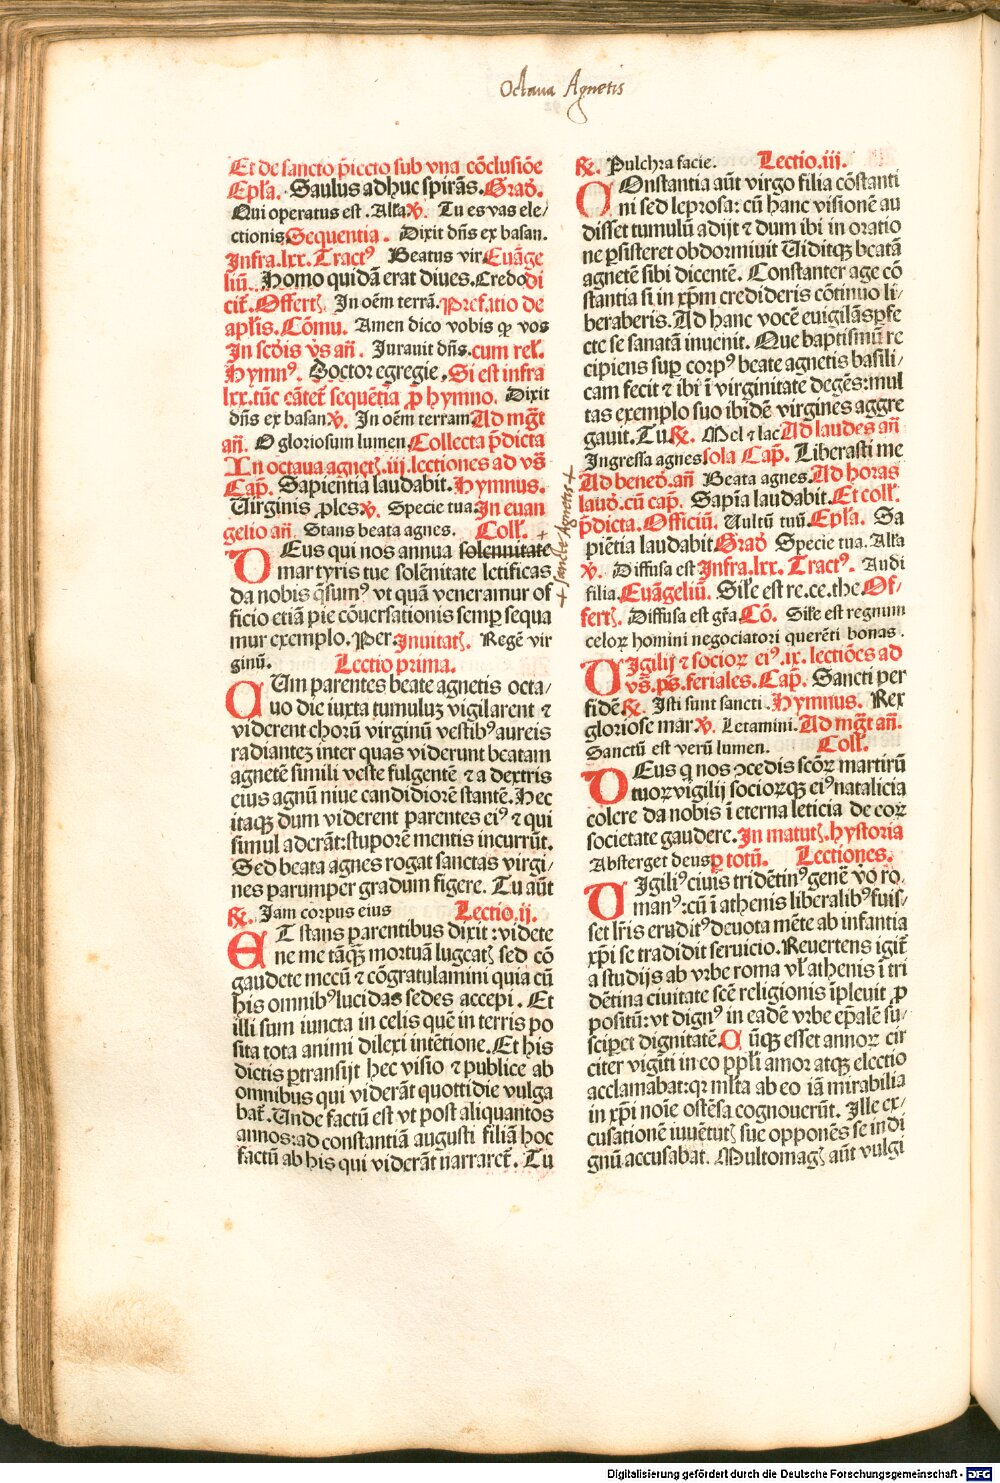 Octaua Agnetis
Et de sancto p̄iecto sub vna cōclusiōe
Epl̄a. Saulus adhuc spirās. Grad̄.
Qui operatus est. Alr̄a ꝟ. Tu es vas ele/
ctionis Sequentia. Dixit dn̄s ex basan.
Infra.lxx. Tractꝰ Beatus vir Euāge
liū. Homo quidā erat diues. Credo di
cit̄. Offertꝭ. In oēm terrā. Prefatio de
apl̄is. Cōmu. Amen dico vobis qꝫ vos
In scd̄is vs̄ an̄. Jurauit dn̄s. cum rel̄.
Hymnꝰ. Doctor egregie. Si est infra
lxx. tūc cātet̄ sequētia ꝓ hymno. Dixit
dn̄s ex basan ꝟ. In oēm terram Ad mgt̄
an̄. O gloriosum lumen. Collecta p̄dicta
In octaua agnetꝭ .iij. lectiones ad vs̄
Cap̄. Sapientia laudabit. Hymnus.
Uirginis ꝓles ꝟ. Specie tua In euan
gelio an̄. Stans beata agnes. Coll̄.
DEus qui nos annua solennitate
martyris tue solēnitate letificas
da nobis q̄sumꝰ vt quā veneramur of
ficio etiā pie cōuersationis semꝑ sequa
mur exemplo. Per. Inuitatꝭ. Regē vir
ginū. Lectio prima.
CUm parentes beate agnetis octa/
uo die iuxta tumuluꝫ vigilarent ⁊
viderent chorū virginū vestibꝰ aureis
radianteꝫ inter quas viderunt beatam
agnetē simili veste fulgentē ⁊ a dextris
eius agnū niue candidiorē stantē. Hec
itaqꝫ dum viderent parentes eiꝰ ⁊ qui
simul aderāt: stuporē mentis incurrūt.
Sed beata agnes rogat sanctas virgi/
nes parumper gradum figere. Tu aūt
℞. Jam corpus eius Lectio.ij.
ET stans parentibus dixit: videte
ne me tāqꝫ mortuā lugeatꝭ sed cō
gaudete mecū ⁊ cōgratulamini quia cū
his omnibꝰ lucidas sedes accepi. Et
illi sum iuncta in celis quē in terris po
sita tota animi dilexi intētione. Et his
dictis ꝑtransijt hec visio ⁊ publice ab
omnibus qui viderāt quottidie vulga
bat̄. Unde factū est vt post aliquantos
annos: ad constantiā augusti filiā hoc
factū ab his qui viderāt narraret̄. Tu
+ sancte Agnetis +
℞. Pulchra facie. Lectio.iii.
COnstantia aūt virgo filia cōstanti
ni sed leprosa: cū hanc visionē au
disset tumulū adijt ⁊ dum ibi in oratio
ne ꝑsisteret obdormiuit Uiditqꝫ beatā
agnetē sibi dicentē. Constanter age cō
stantia si in xp̄m credideris cōtinuo li/
beraberis. Ad hanc vocē euigilās ꝑfe
cte se sanatā inuenit. Que baptismū re
cipiens suꝑ corpꝰ beate agnetis basili/
cam fecit ⁊ ibi ī virginitate degēs: mul
tas exemplo suo ibidē virgines aggre
gauit. Tu ℞. Mel ⁊ lac Ad laudes an̄
Ingressa agnes sola Cap̄. Liberasti me
Ad bened̄. an̄ Beata agnes. Ad horas
laud̄. cū cap̄. Sapīa laudabit. Et coll̄.
p̄dicta. Officiū. Uultū tuū. Epl̄a. Sa
piētia laudabit Grad̄ Specie tua. Alr̄a
ꝟ. Diffusa est Infra.lxx. Tractꝰ. Audi
filia. Euāgeliū. Sil̄e est re.ce.the. Of/
fertꝭ. Diffusa est gr̄a Cō. Sil̄e est regnum
celoꝝ homini negociatori querēti bonas.
UIgilij ⁊ socioꝝ eiꝰ .ix. lectiōes ad
vs̄. ps̄. feriales. Cap̄. Sancti per
fidē ℞. Isti sunt sancti. Hymnus. Rex
gloriose mar ꝟ. Letamini. Ad mgt̄ an̄.
Sanctū est verū lumen. Coll̄.
DEus q̄ nos ꝯcedis scōꝝ martirū
tuoꝝ vigilij socioꝝqꝫ eiꝰ natalicia
colere da nobis ī eterna leticia de eoꝝ
societate gaudere. In matutꝭ. hystoria
Absterget deus ꝑ totū. Lectiones.
UIgiliꝰ ciuis tridētinꝰ genē vo ro
manꝰ: cū ī athenis liberalibꝰ fuis/
set lr̄is eruditꝰ deuota mēte ab infantia
xp̄i se tradidit seruicio. Reuertens igit̄
a studijs ab vrbe roma vl̄ athenis ī tri
dētina ciuitate scē religionis īpleuit ꝓ
positū: vt dignꝰ in eadē vrbe ep̄ale su/
sciꝑet dignitatē. Cūqꝫ esset annoꝝ cir
citer vigīti in eo ppl̄i amor atqꝫ electio
acclamabat: qꝛ ml̄ta ab eo iā mirabilia
in xp̄i noīe ostēsa cognouerūt. Ille ex/
cusationē iuuētutꝭ sue opponēs se indi
gnū accusabat. Multomagꝭ aūt vulgi
Digitalisierung gefördert durch die Deutsche Forschungsgemeinschaft - DFG